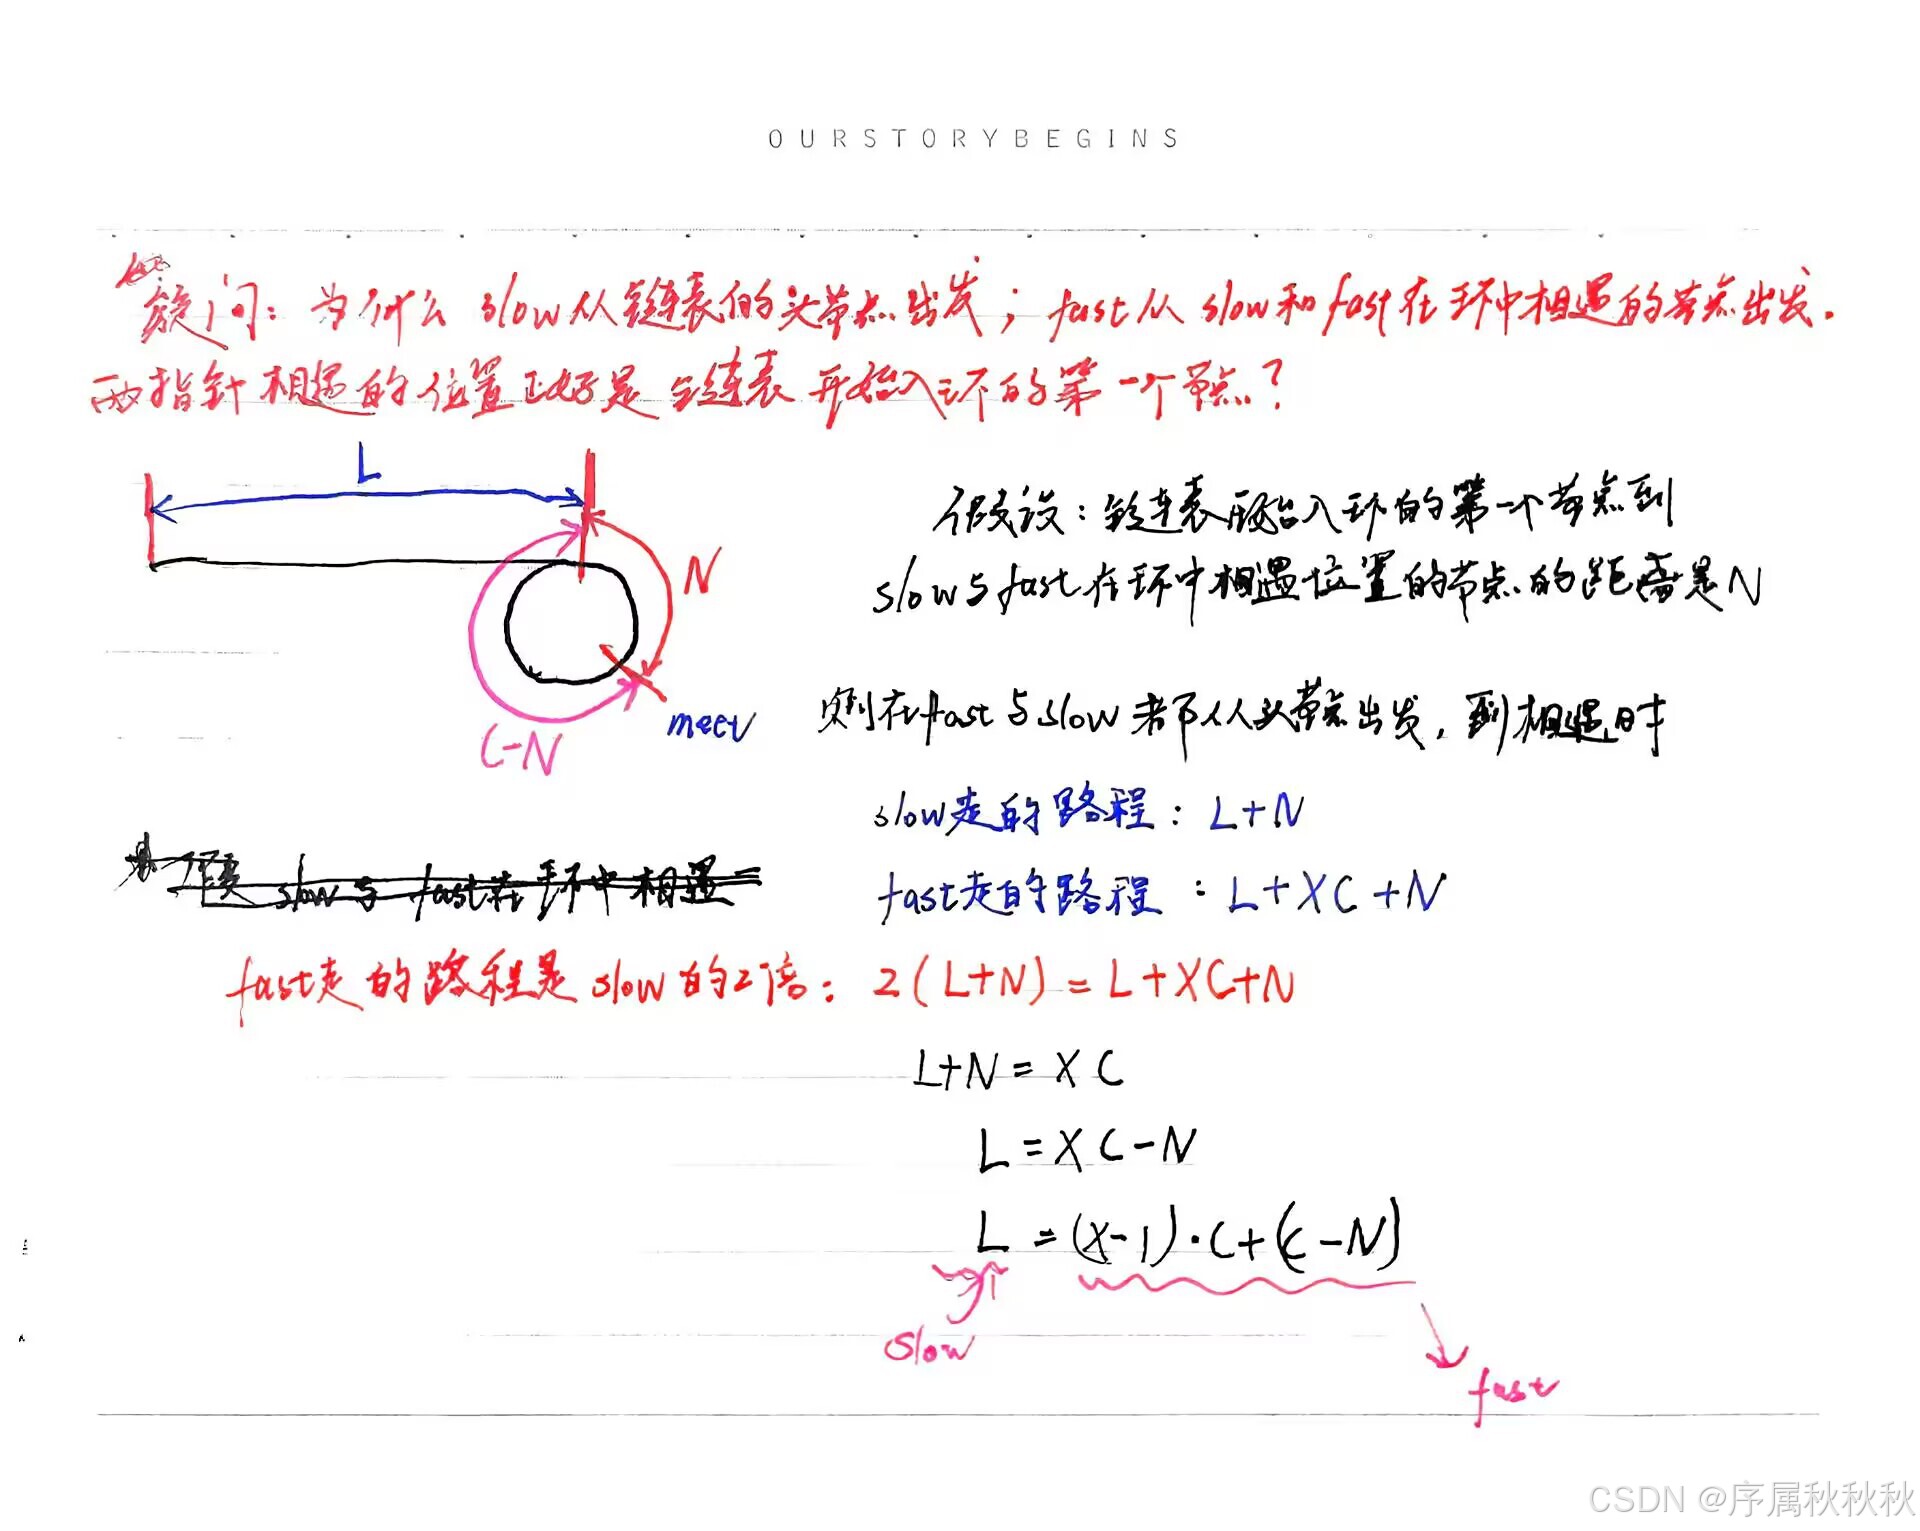 OURSTORYBEGINS
疑问：为什么 slow从链表的头节点出发；fast从 slow和fast在环中相遇的节点出发.
两指针相遇的位置正好是链表开始入环的第一个节点?
L
N
meet
C-N
假设：链表开始入环的第一个节点到
slow与fast在环中相遇位置的节点的距离是N
则在fast与slow都从头节点出发，到相遇时
slow走的路程：L+N
slow与fast在环中相遇
fast走的路程：L+XC+N
fast走的路程是slow的2倍：2(L+N)=L+XC+N
L+N=XC
L=XC-N
L=(X-1)·C+(C-N)
slow
fast
CSDN @序属秋秋秋